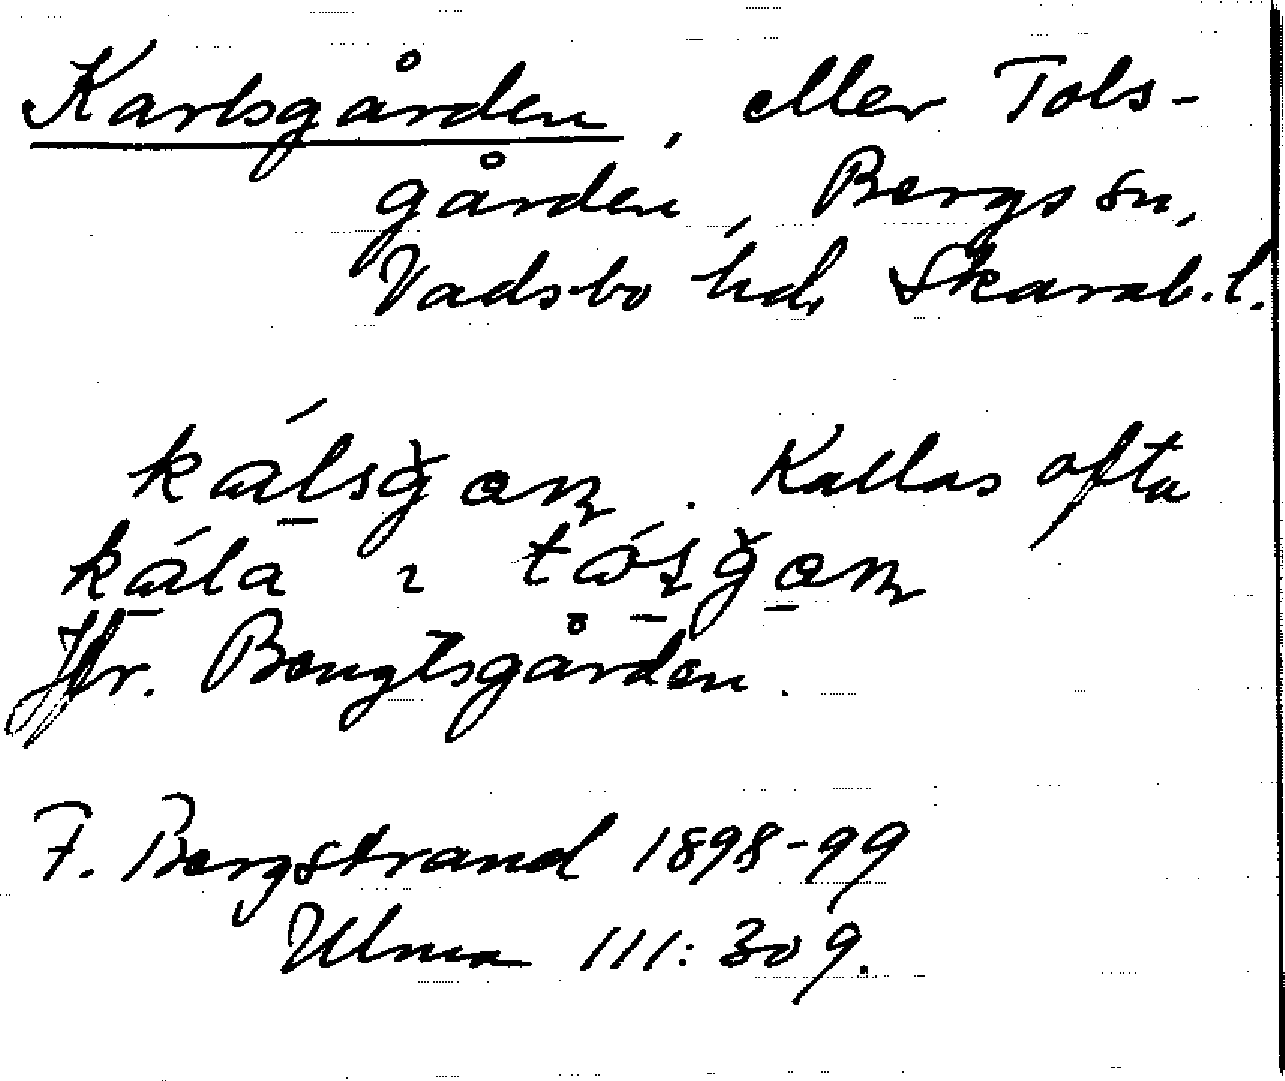 Karlsgården, eller Tols-
gården, Bergs sn,
Vadsbo hd, Skarab. l.
kálsğam. Kallas ofta
kála ı tásğam
Jfr. Bengtsgården.
F. Bergstrand 1898-99
Ulma 111:309.